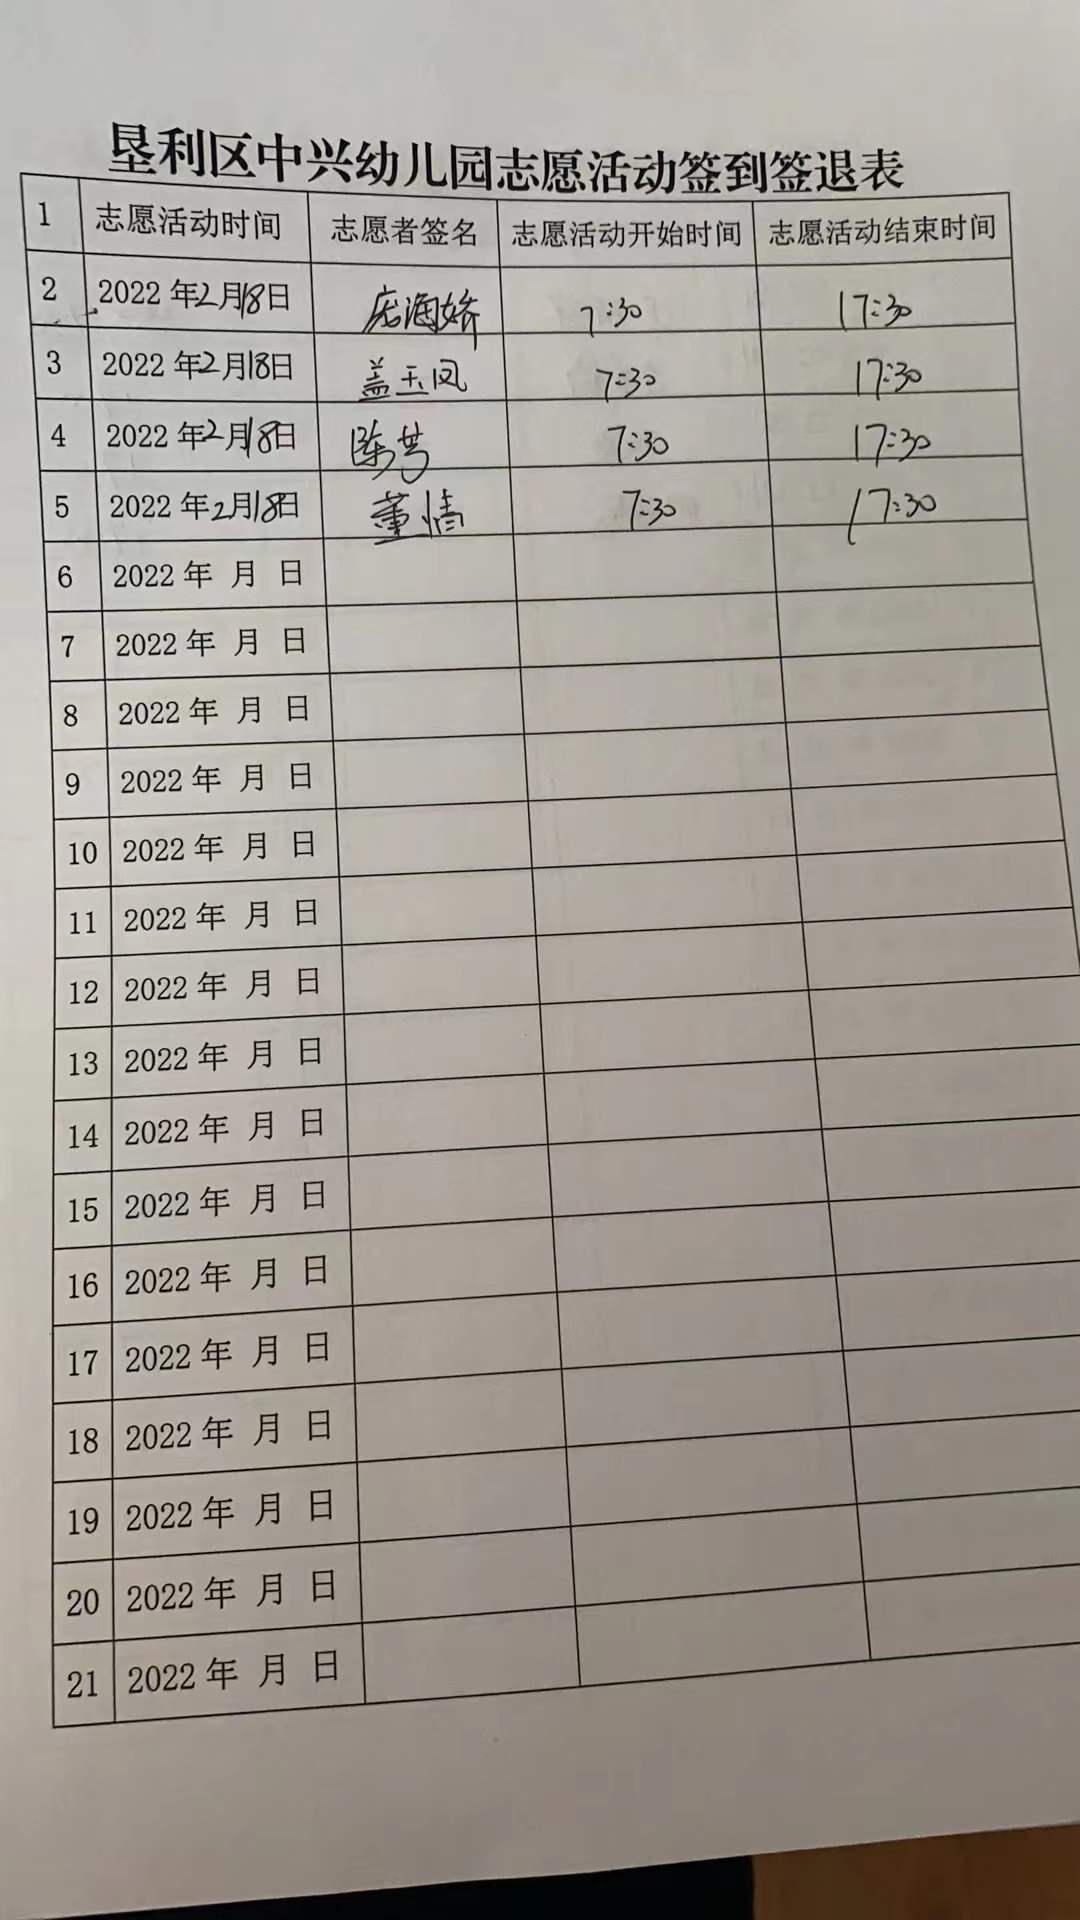 垦利区中兴幼儿园志愿活动签到签退表
1 志愿活动时间 志愿者签名 志愿活动开始时间 志愿活动结束时间
2 2022年2月18日 庞海娇 7:30 17:30
3 2022年2月18日 盖玉凤 7:30 17:30
4 2022年2月18日 陈芳 7:30 17:30
5 2022年2月18日 董情 7:30 17:30
6 2022年 月 日
7 2022年 月 日
8 2022年 月 日
9 2022年 月 日
10 2022年 月 日
11 2022年 月 日
12 2022年 月 日
13 2022年 月 日
14 2022年 月 日
15 2022年 月 日
16 2022年 月 日
17 2022年 月 日
18 2022年 月 日
19 2022年 月 日
20 2022年 月 日
21 2022年 月 日